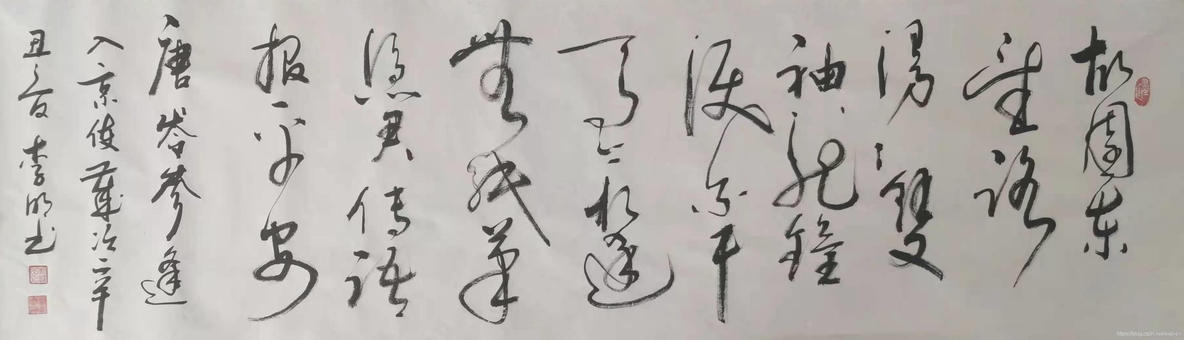 故園東
望路
漫〻雙
袖龍鐘
淚不干
馬上相逢
無紙筆
憑君傳語
報平安
唐岑參逢
入京使歲次辛
丑夏李明书